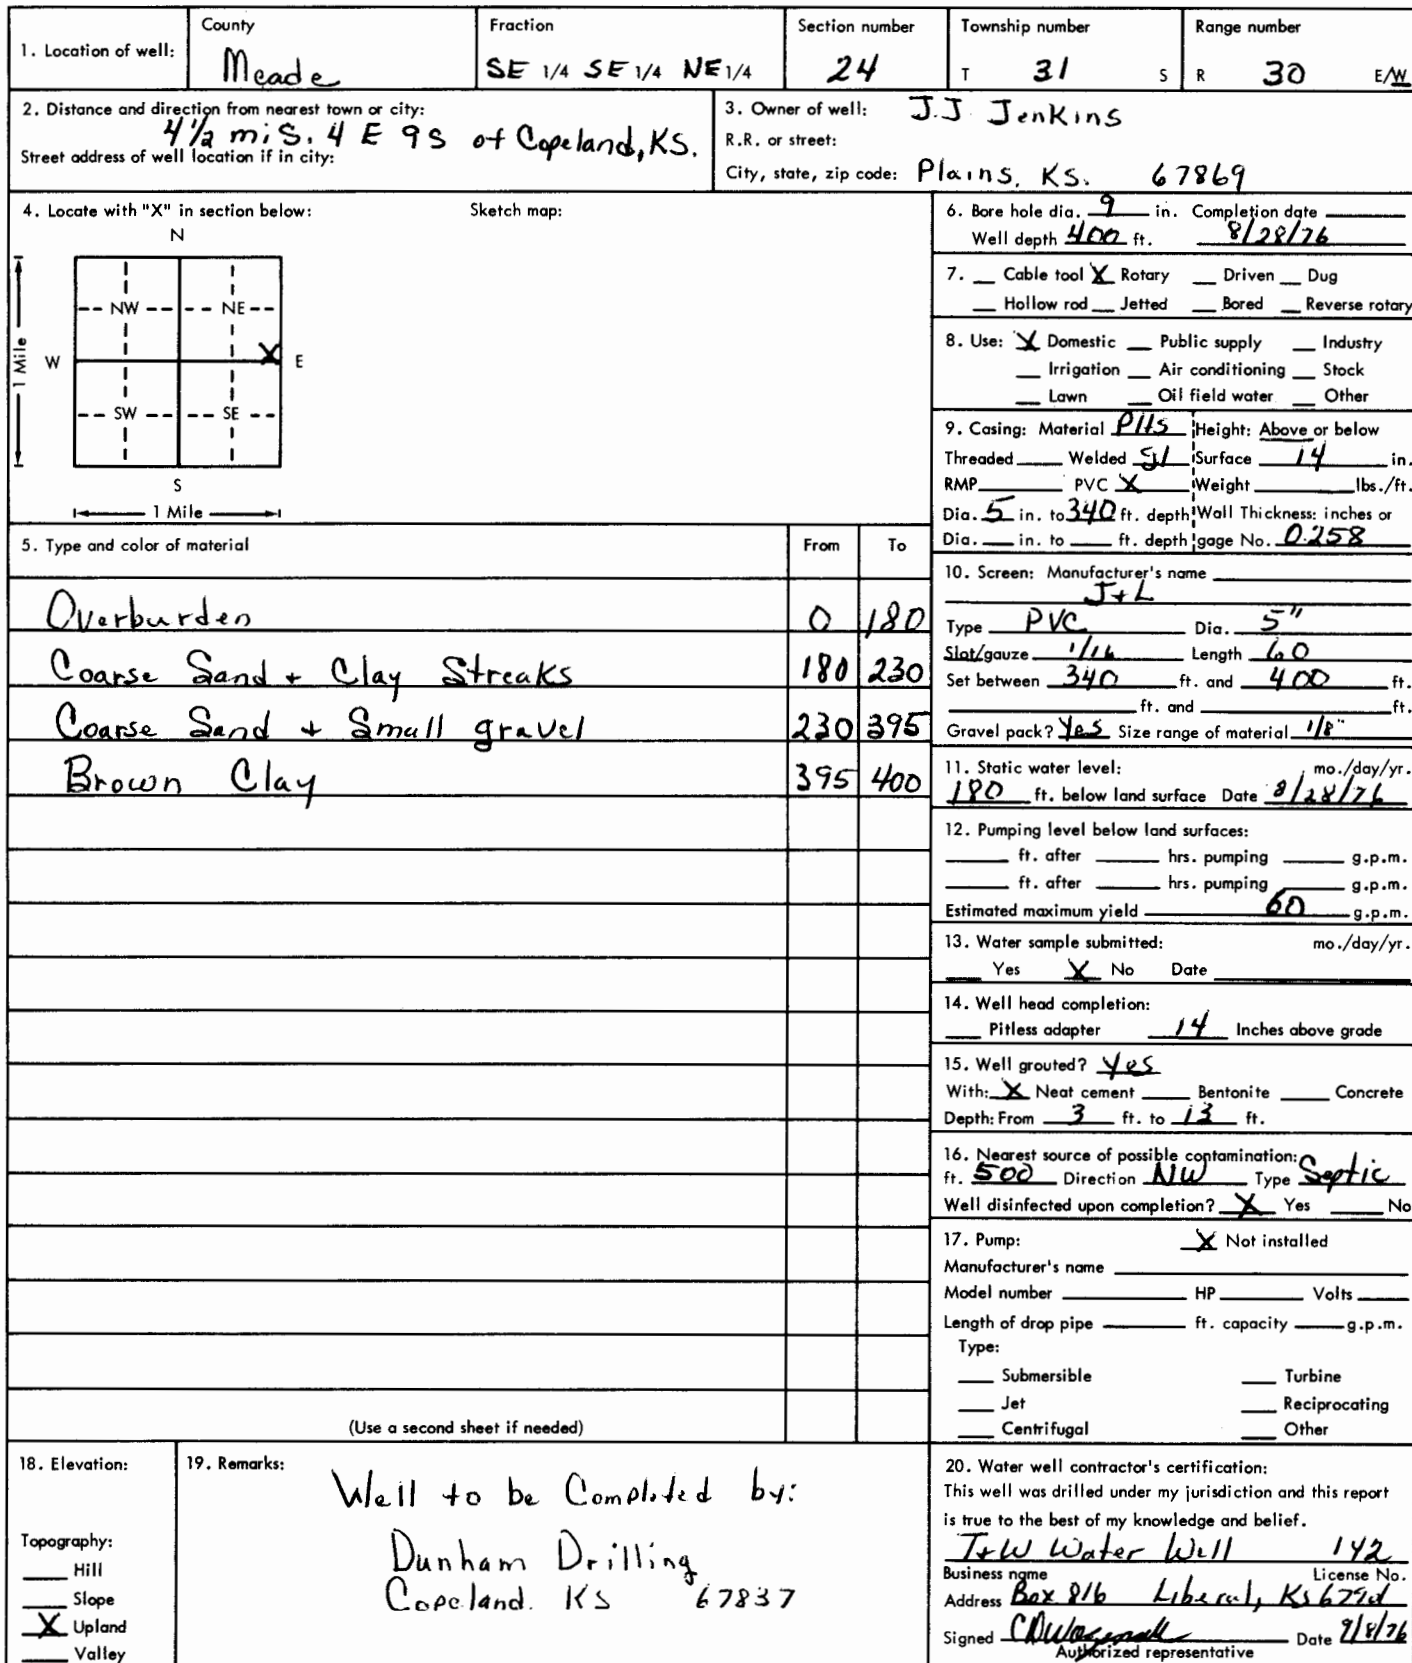 1. Location of well:
County
Meade
Fraction
SE 1/4 SE 1/4 NE 1/4
Section number
24
Township number
T 31 S
Range number
R 30 E/W
2. Distance and direction from nearest town or city:
4 1/2 mi S. 4 E 9 S of Copeland, KS.
Street address of well location if in city:
3. Owner of well: J.J. Jenkins
R.R. or street:
City, state, zip code: Plains, KS. 67869
4. Locate with "X" in section below:
Sketch map:
N
NW NE
W X E
SW SE
S
1 Mile
1 Mile
5. Type and color of material From To
Overburden 0 180
Coarse Sand + Clay Streaks 180 230
Coarse Sand + Small gravel 230 395
Brown Clay 395 400
(Use a second sheet if needed)
6. Bore hole dia. 9 in. Completion date
Well depth 400 ft. 8/28/76
7. Cable tool X Rotary Driven Dug
Hollow rod Jetted Bored Reverse rotary
8. Use: X Domestic Public supply Industry
Irrigation Air conditioning Stock
Lawn Oil field water Other
9. Casing: Material Height: Above or below
Threaded Welded Surface 14 in.
RMP PVC X Weight lbs./ft.
Dia. 5 in. to 340 ft. depth Wall Thickness: inches or
Dia. in. to ft. depth gage No. 0.258
10. Screen: Manufacturer's name
J+L
Type PVC Dia. 5"
Slot/gauze 1/16 Length 60
Set between 340 ft. and 400 ft.
ft. and ft.
Gravel pack? Yes Size range of material 1/8"
11. Static water level: mo./day/yr.
180 ft. below land surface Date 8/28/76
12. Pumping level below land surfaces:
ft. after hrs. pumping g.p.m.
ft. after hrs. pumping g.p.m.
Estimated maximum yield 60 g.p.m.
13. Water sample submitted: mo./day/yr.
Yes X No Date
14. Well head completion:
Pitless adapter 14 Inches above grade
15. Well grouted? Yes
With: X Neat cement Bentonite Concrete
Depth: From 3 ft. to 13 ft.
16. Nearest source of possible contamination:
ft. 500 Direction NW Type Septic
Well disinfected upon completion? X Yes No
17. Pump: X Not installed
Manufacturer's name
Model number HP Volts
Length of drop pipe ft. capacity g.p.m.
Type:
Submersible Turbine
Jet Reciprocating
Centrifugal Other
18. Elevation:
Topography:
Hill
Slope
X Upland
Valley
19. Remarks:
Well to be Completed by:
Dunham Drilling
Copeland. KS 67837
20. Water well contractor's certification:
This well was drilled under my jurisdiction and this report
is true to the best of my knowledge and belief.
T+W Water Well 142
Business name License No.
Address Box 816 Liberal, Ks
Signed Date 9/8/76
Authorized representative